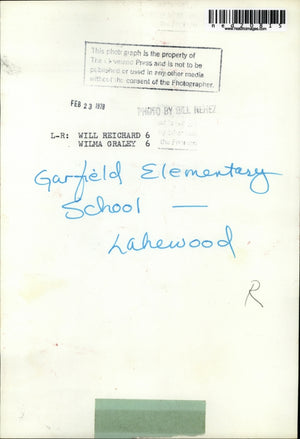 ned20815
This photograph is the property of
The Cleveland Press and is not to be
published or used in any other media
without the consent of the Photographer.
FEB 23 1978
PHOTO BY BILL NEHEZ
L-R: WILL REICHARD 6
WILMA GRALEY 6
Garfield Elementary
School —
Lakewood
R